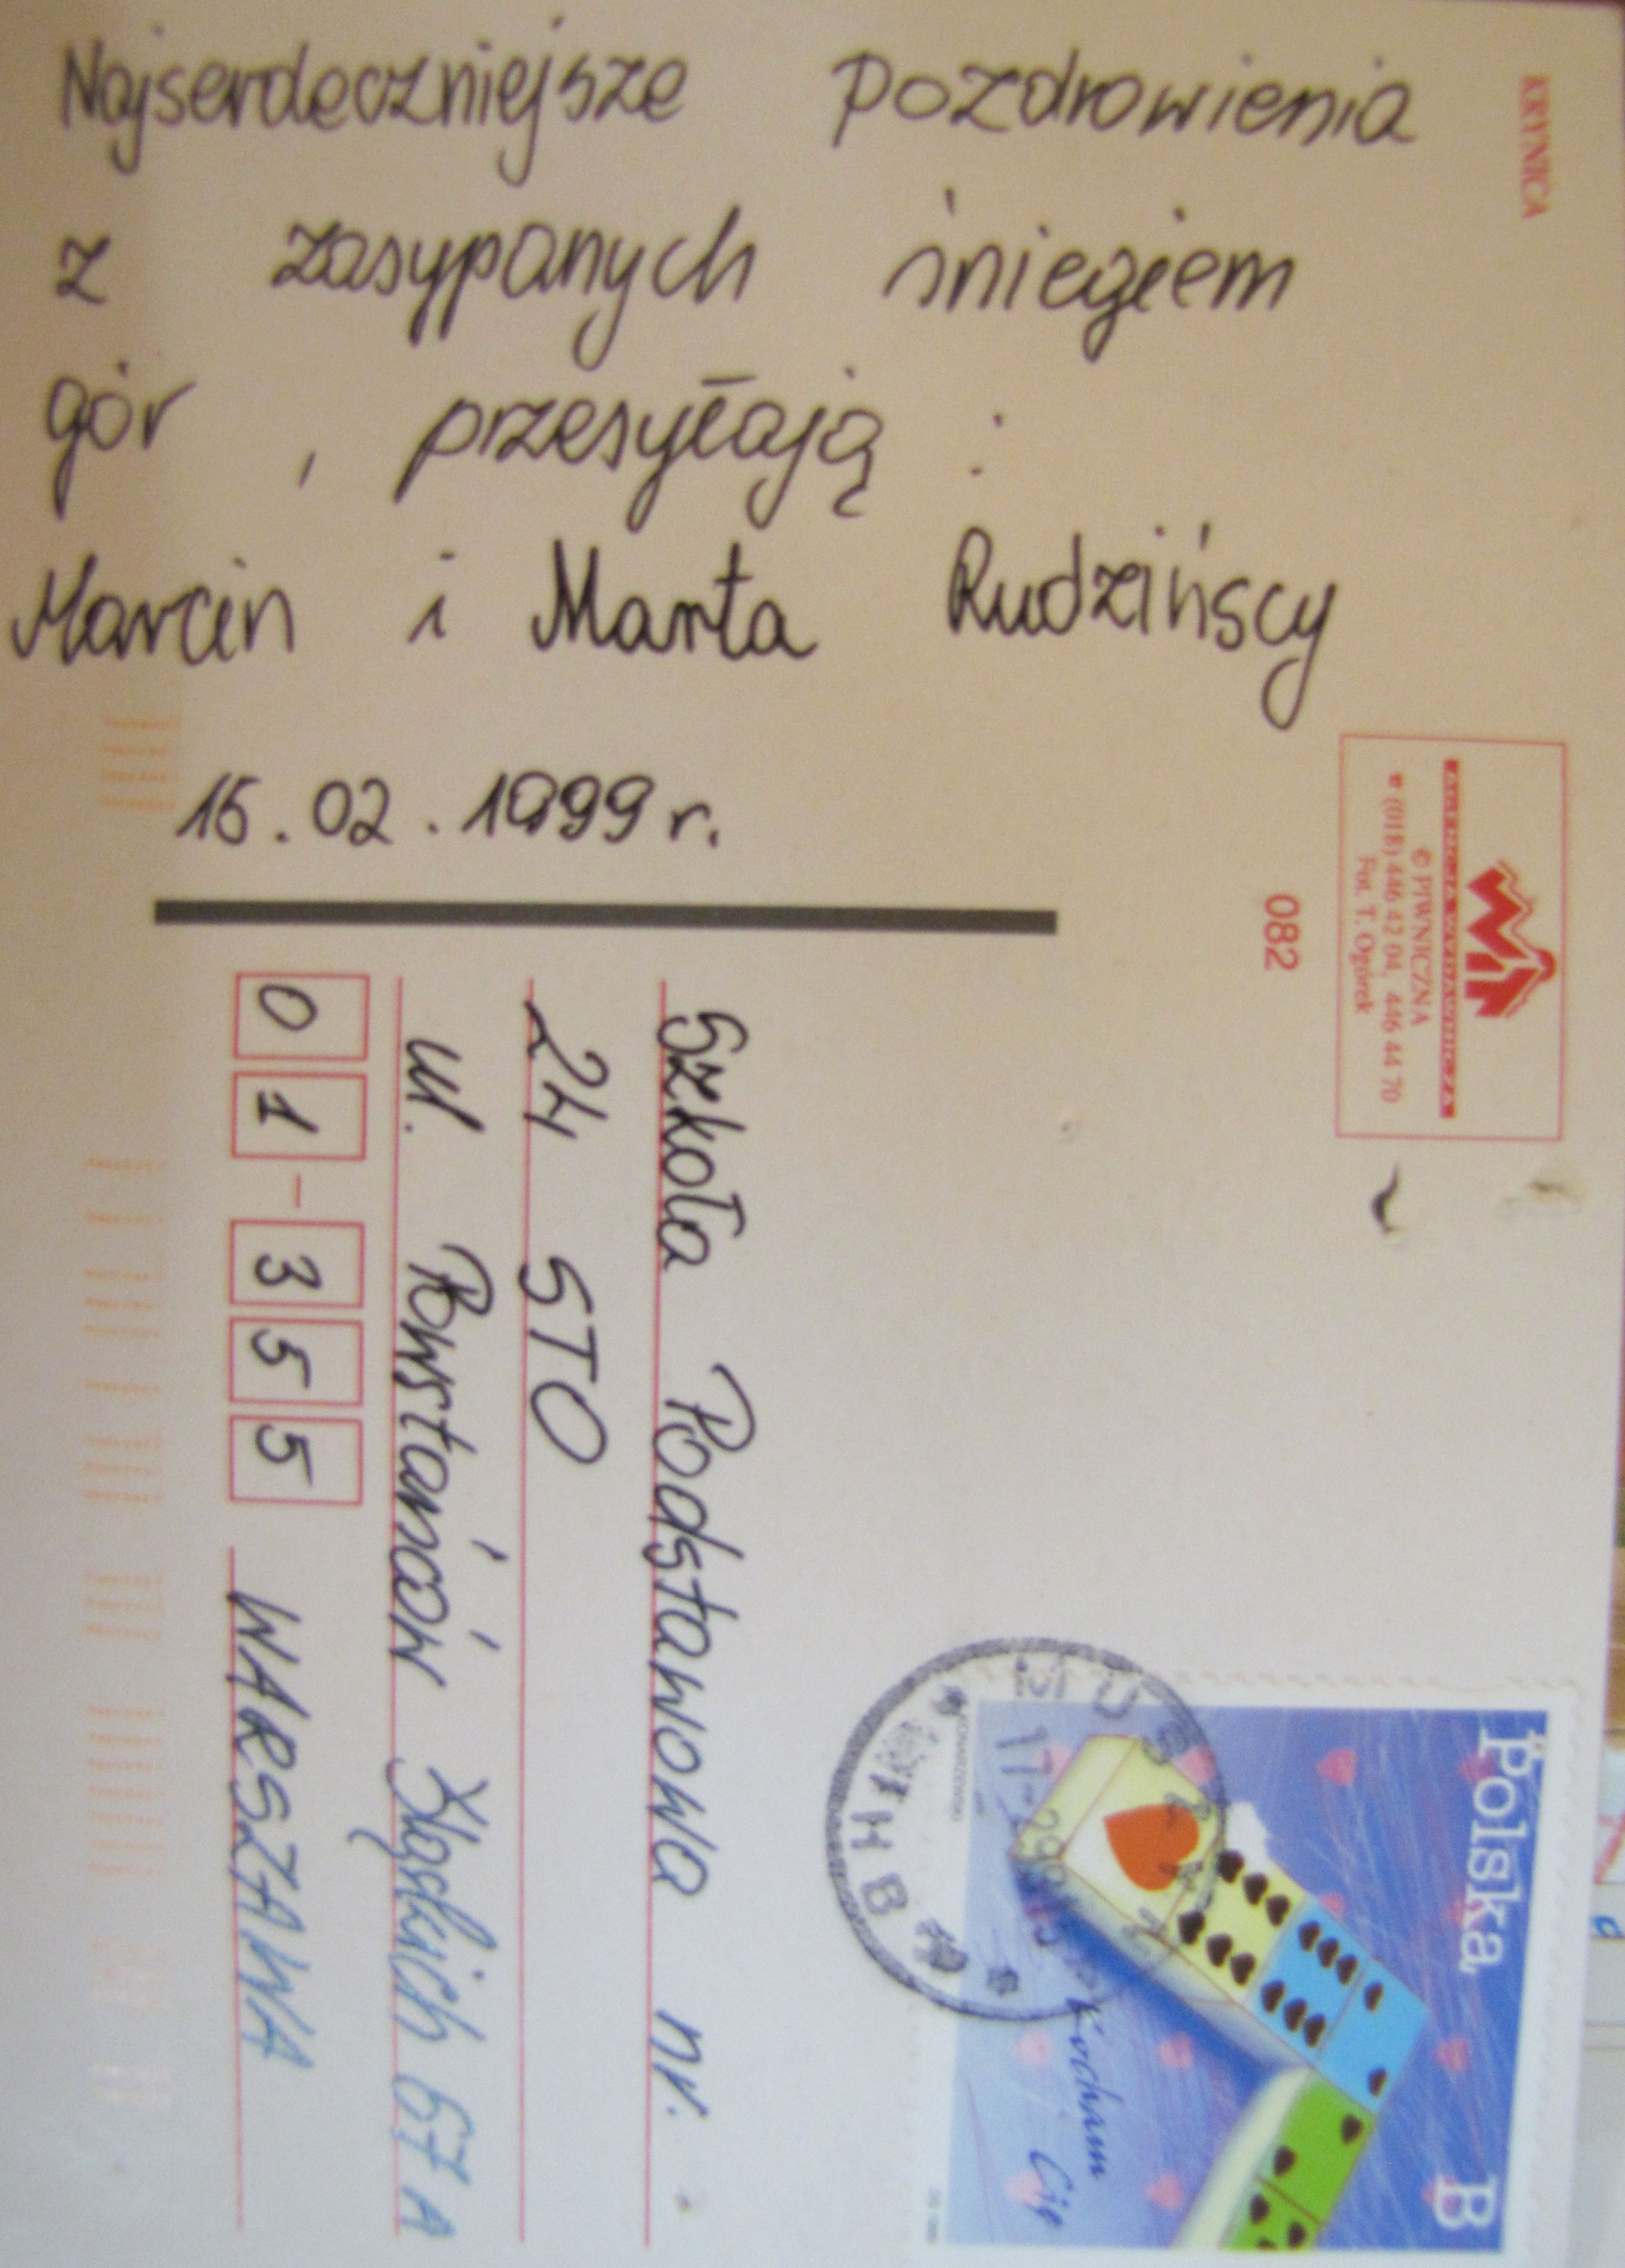 Najserdeczniejsze pozdrowienia
z zasypanych śniegiem
gór, przesyłają:
Marcin i Marta Rudzińscy
15.02.1999r.
KRYNICA
© PIWNICZNA
☎ (018) 446 42 04, 446 44 70
Fot. T. Ogórek
082
Polska B
Kocham Cię
Szkoła Podstawowa nr.
24 STO
ul. Powstańców Śląskich 67A
01-355 WARSZAWA